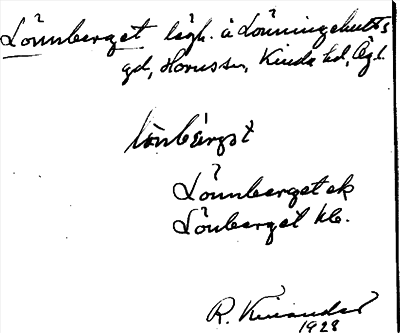 Lönnberget lägh. å Lönningehults
gd, Horns sn, Kinda hd, Ögl.
lönbärgət
Lönnberget ek
Lönberget kb.
R. Kinander
1928